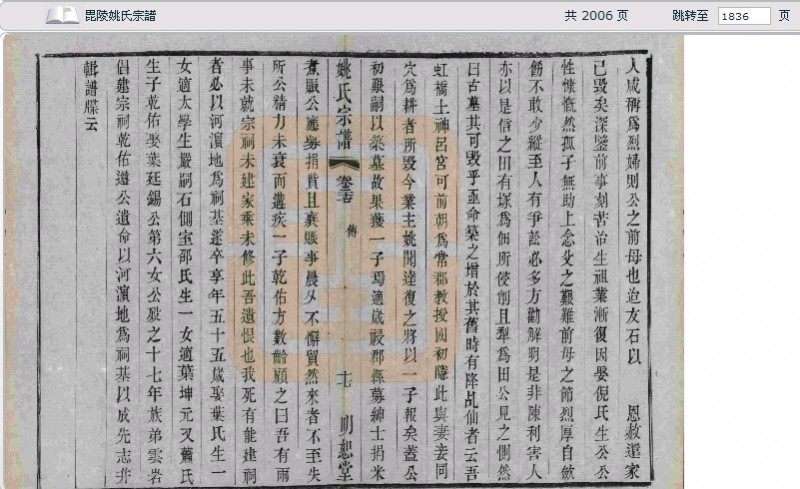 毘陵姚氏宗譜
共 2006 页
跳转至 1836 页
人咸稱爲烈婦則公之前母也迨友石以 恩赦還家
已毀矣深鑒前事刻苦治生祖業漸復因娶倪氏生公公
性慷慨然孤子無助上念父之艱難前母之節烈厚自斂
飭不敢少縱至人有爭訟必多方勸解明是非陳利害人
亦以是信之田有塚爲佃所侵削且犁爲田公見之惻然
曰古墓其可毀乎亟命築之增於其舊時有降乩仙者云吾
虹橋土神呂宮可前朝爲常郡教授國初隱此與妻妾同
穴爲耕者所毀今業主姚聞達復之將以一子報矣蓋公
初艱嗣以築墓故果獲一子焉適歲祲郡縣募紳士捐米
姚氏宗譜 卷 傳 七 明恕堂
煮賑公應募捐貲且襄賑事晨夕不懈貿然來者不至失
所公精力未衰而遘疾一子乾佑方數齡顧之曰吾有兩
事未就宗祠未建家乘未修此吾遺恨也我死有能建祠
者必以河濱地爲祠基遂卒享年五十五歲娶葉氏生一
女適太學生嚴嗣石側室邵氏生一女適葉坤元又蕭氏
生子乾佑娶葉廷錫公第六女公歿之十七年族弟雲岩
倡建宗祠乾佑遵公遺命以河濱地爲祠基以成先志并
輯譜牒云